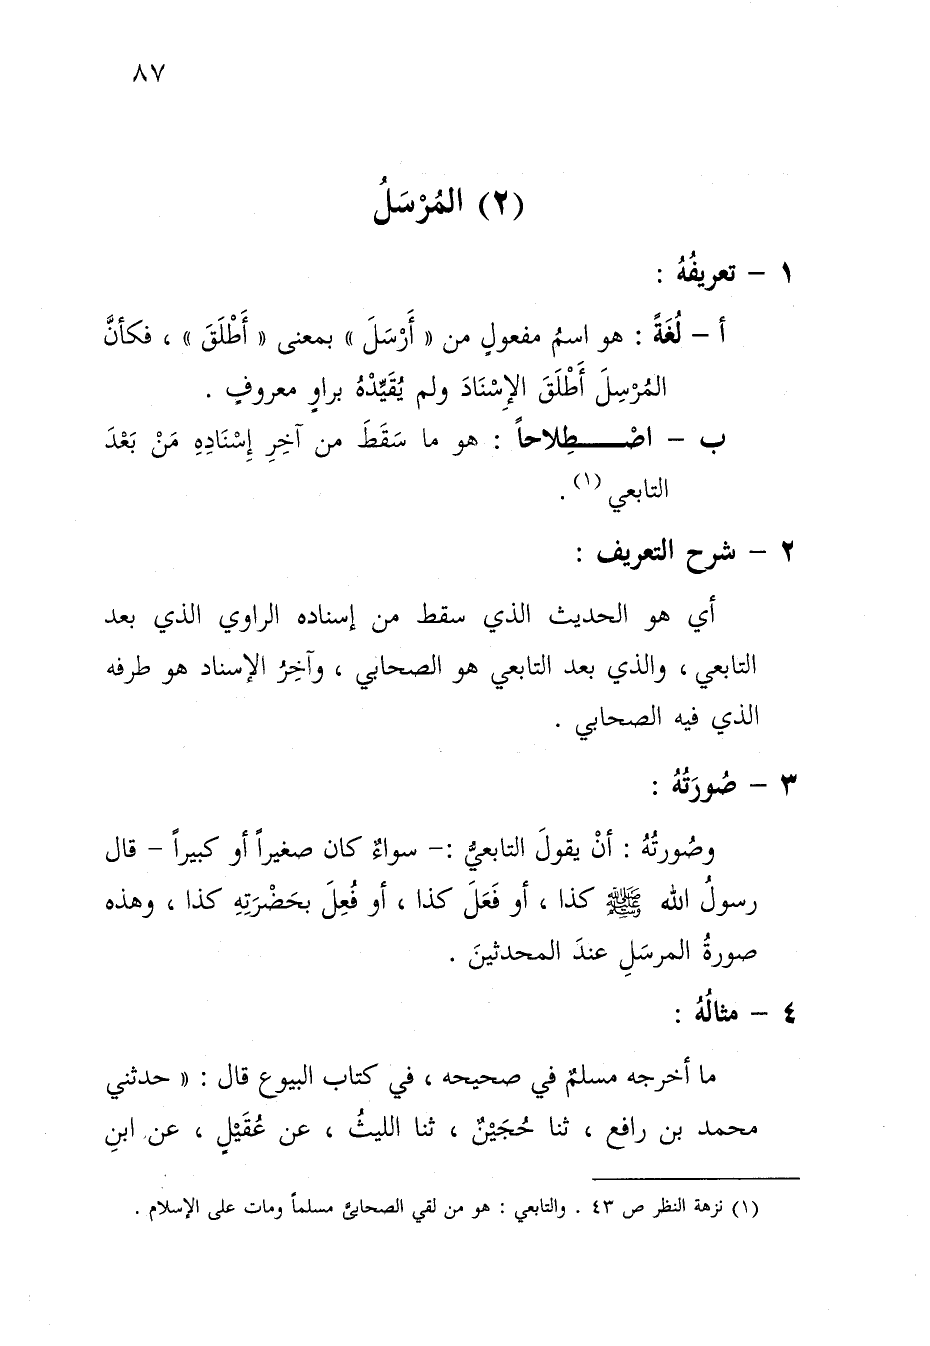 ٨٧
(٢) المُرْسَلُ
١ – تعريفُهُ :
أ – لُغَةً : هو اسمُ مفعولٍ من « أَرْسَلَ » بمعنى « أَطْلَقَ » ، فكأنَّ
المُرْسِلَ أَطْلَقَ الإِسْنَادَ ولم يُقَيِّدْهُ براوٍ معروفٍ .
ب – اصْـــطِلاحاً : هو ما سَقَطَ من آخِرِ إِسْنَادِهِ مَنْ بَعْدَ
التابعي (١) .
٢ – شرح التعريف :
أي هو الحديث الذي سقط من إسناده الراوي الذي بعد
التابعي ، والذي بعد التابعي هو الصحابي ، وآخِرُ الإسناد هو طرفه
الذي فيه الصحابي .
٣ – صُورَتُهُ :
وصُورتُهُ : أنْ يقولَ التابعيُّ :– سواءٌ كان صغيراً أو كبيراً – قال
رسولُ الله ﷺ كذا ، أو فَعَلَ كذا ، أو فُعِلَ بحَضْرَتِهِ كذا ، وهذه
صورةُ المرسَلِ عندَ المحدثينَ .
٤ – مثالُهُ :
ما أخرجه مسلمٌ في صحيحه ، في كتاب البيوع قال : « حدثني
محمد بن رافع ، ثنا حُجَيْنٌ ، ثنا الليثُ ، عن عُقَيْلٍ ، عن ابنِ
(١) نزهة النظر ص ٤٣ . والتابعي : هو من لقي الصحابيَّ مسلماً ومات على الإسلام .